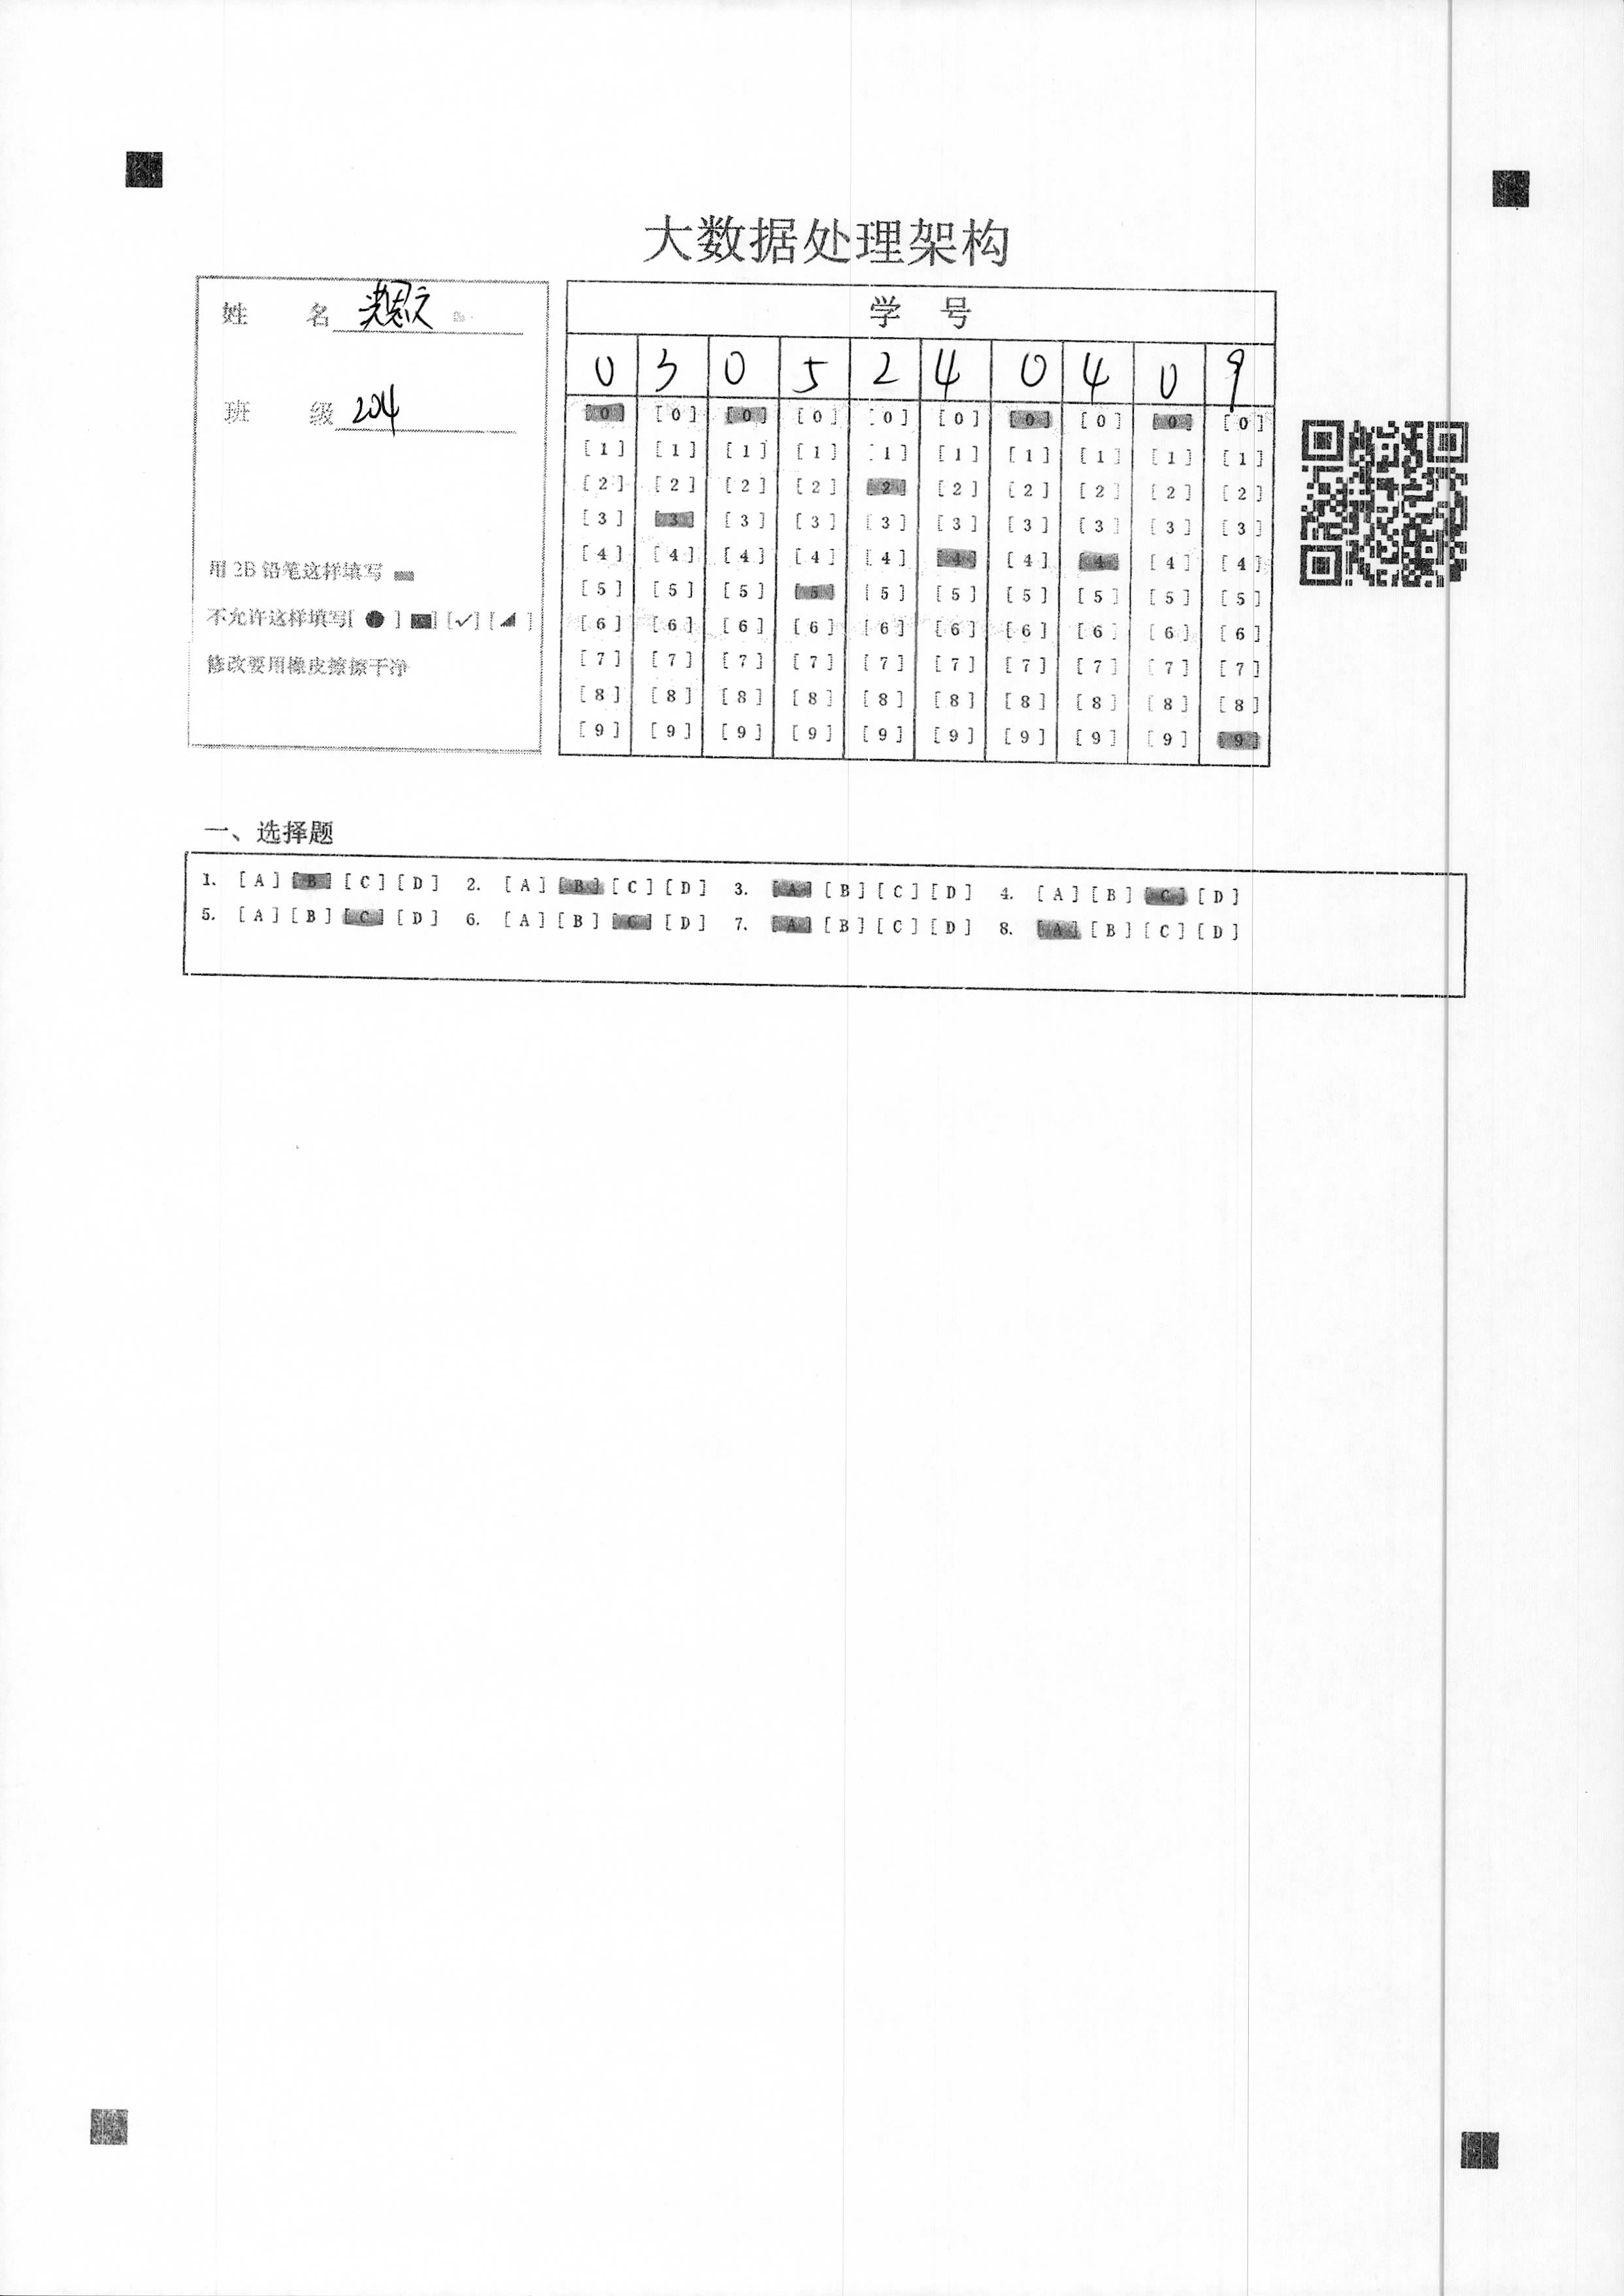 大数据处理架构
姓 名
班 级 204
用 2B 铅笔这样填写
不允许这样填写[ ● ] [■] [✓] [◢ ]
修改要用橡皮擦擦干净
学 号
0 3 0 5 2 4 0 4 0 9
[0] [0] [0] [0] [0] [0] [0] [0] [0] [0]
[1] [1] [1] [1] [1] [1] [1] [1] [1] [1]
[2] [2] [2] [2] [2] [2] [2] [2] [2] [2]
[3] [3] [3] [3] [3] [3] [3] [3] [3] [3]
[4] [4] [4] [4] [4] [4] [4] [4] [4] [4]
[5] [5] [5] [5] [5] [5] [5] [5] [5] [5]
[6] [6] [6] [6] [6] [6] [6] [6] [6] [6]
[7] [7] [7] [7] [7] [7] [7] [7] [7] [7]
[8] [8] [8] [8] [8] [8] [8] [8] [8] [8]
[9] [9] [9] [9] [9] [9] [9] [9] [9] [9]
一、选择题
1. [A] [B] [C] [D] 2. [A] [B] [C] [D] 3. [A] [B] [C] [D] 4. [A] [B] [C] [D]
5. [A] [B] [C] [D] 6. [A] [B] [C] [D] 7. [A] [B] [C] [D] 8. [A] [B] [C] [D]